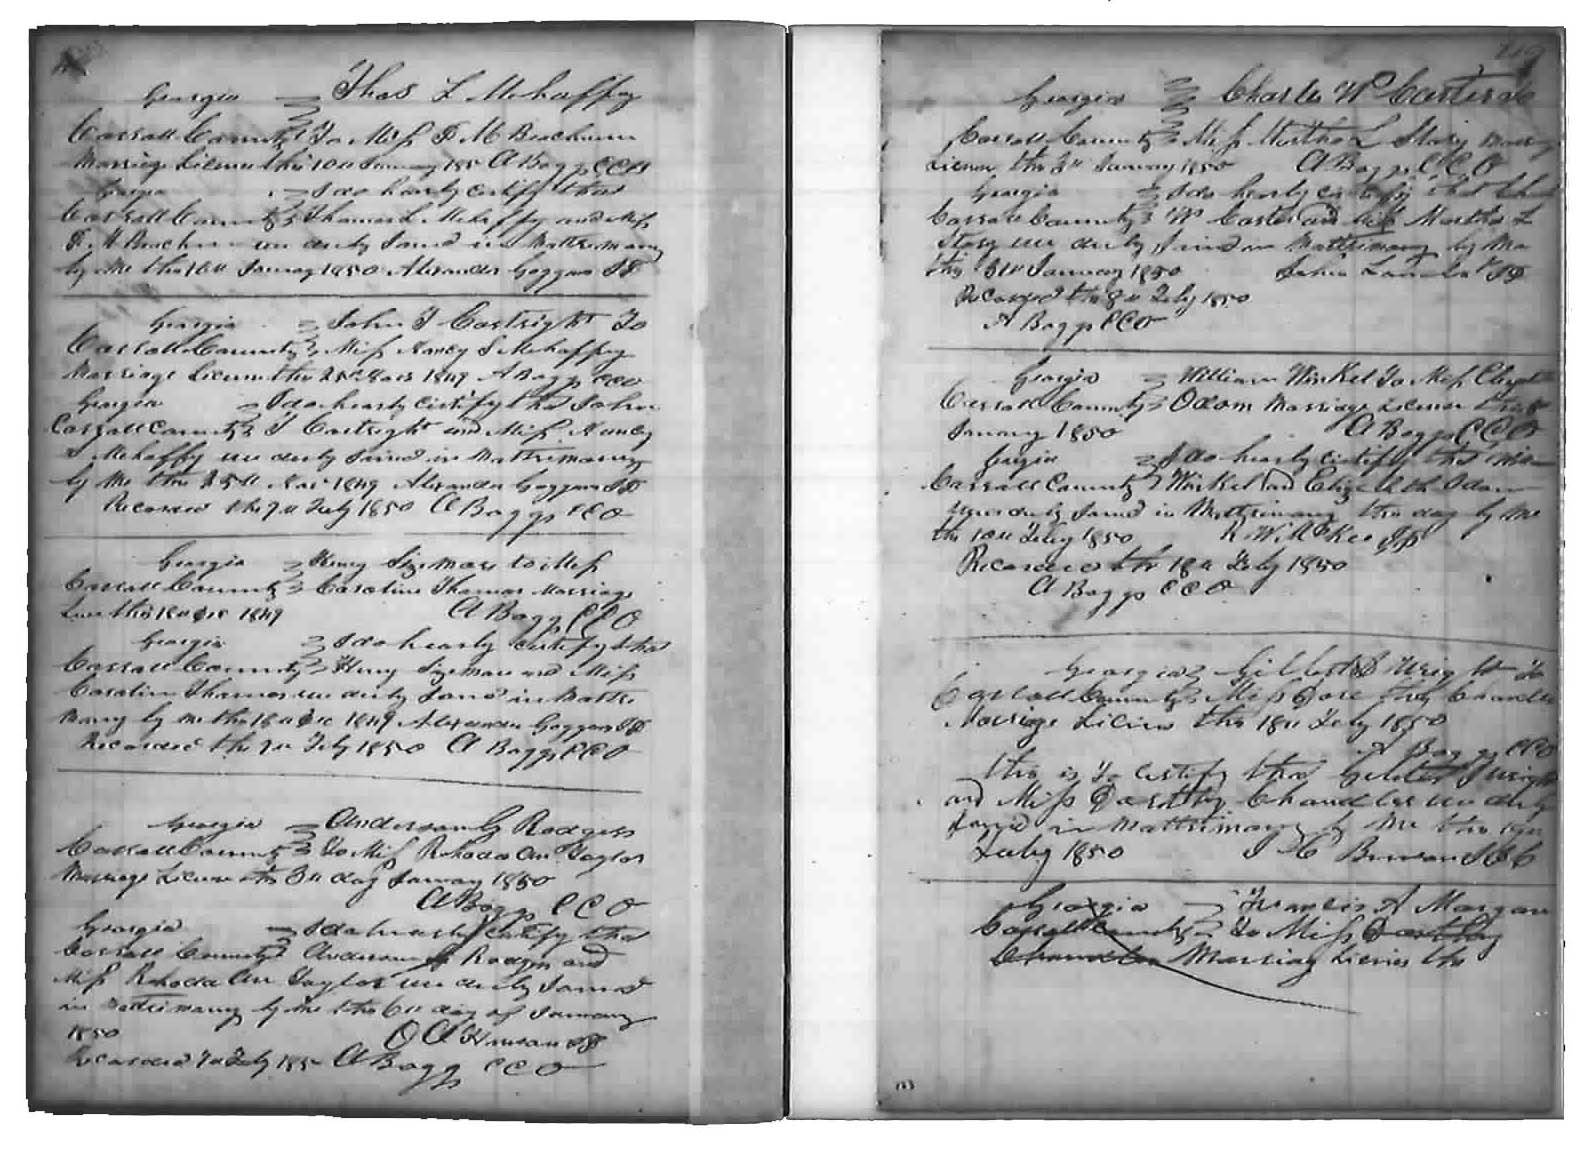 Georgia Thos L Mehaffey
Carroll County To Miss F M Beachum
Marriage License this 10th January 185 A Boggs CCO
Georgia I do hearby certify that
Carroll County Thomas L Mehaffey and Miss
F. M. ware duly Joined in Mattrimony
by Me this 10th January 1850 Alexander Goggans JP
Georgia John T Cartright To
Carroll County Miss Nancy S Mehaffey
Marriage License this 1849 A Boggs CCO
Georgia I do hearby certify that John
Carroll County T Cartright and Miss Nancy
S Mehaffey ware duly Joined in Mattrimony
by Me this 25th Nov 1849 Alexander Goggans JP
Recorded the 7th Feby 1850 A Boggs CCO
Georgia Henry Sizemore to Miss
Carroll County Caroline Thomas Marriage
this Dec 1849 A Boggs CCO
Georgia I do hearby certify that
Carroll County Henry Sizemore and Miss
Caroline Thomas ware duly Joined in Mattri
mony by me this Dec 1849 Alexander Goggans JP
Recorded the 7th Feby 1850 A Boggs CCO
Georgia Anderson G Rodgers
Carroll County To Miss Rhoda An Taylor
Marriage License this 3th day January 1850
A Boggs CCO
Georgia I do hearby certify that
Carroll County Anderson G Rodgers and
Miss Rhoda An Taylor ware duly Joined
in Mattrimony by Me this 6th day of January
1850 JP
Recorded 7th Feby 185 A Boggs CCO
219
Georgia Charles W Carter to
Carroll County Miss Martha L Story Marriage
License this 3th January 1850 A Boggs CCO
Georgia I do hearby certify that
Carroll County W Carter and Miss Martha L
Story ware duly Joined in Mattrimony by Me
this 31th January 1850 John JP
Recorded the 8th Feby 1850
A Boggs CCO
Georgia William Winkel To Miss
Carroll County Odom Marriage License
January 1850 A Boggs CCO
Georgia I do hearby certify that
Carroll County Winkel and Elizabeth Odom
ware duly Joined in Mattrimony this day by Me
the 10th Feby 1850 R W McKee JP
Recorded the 18th Feby 1850
A Boggs CCO
Georgia Gilbert Wright To
Carroll County Miss Chandler
Marriage License this 18th Feby 1850
A Boggs CCO
this is To certify that Wright
and Miss Chandler ware duly
Joined in Mattrimony by Me this
Feby 1850
Georgia Francis A Morgan
Carroll County To Miss Dorthy
Chandler Marriage License this